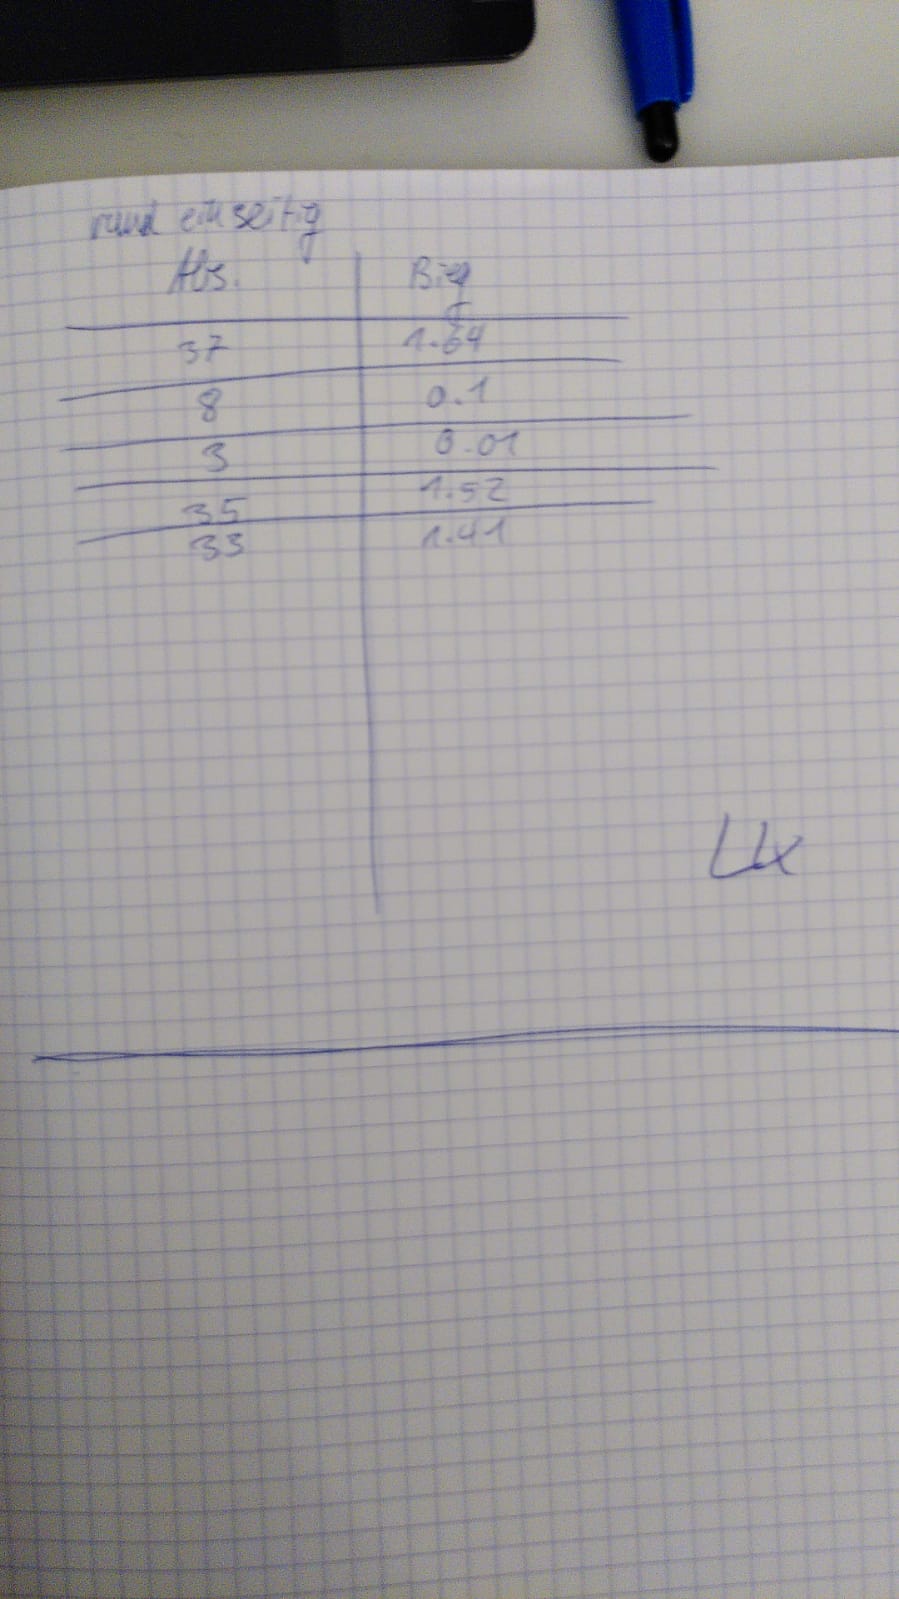 rund einseitig
Abs. Bieg
37 1.64
8 0.1
3 0.01
35 1.52
33 1.41